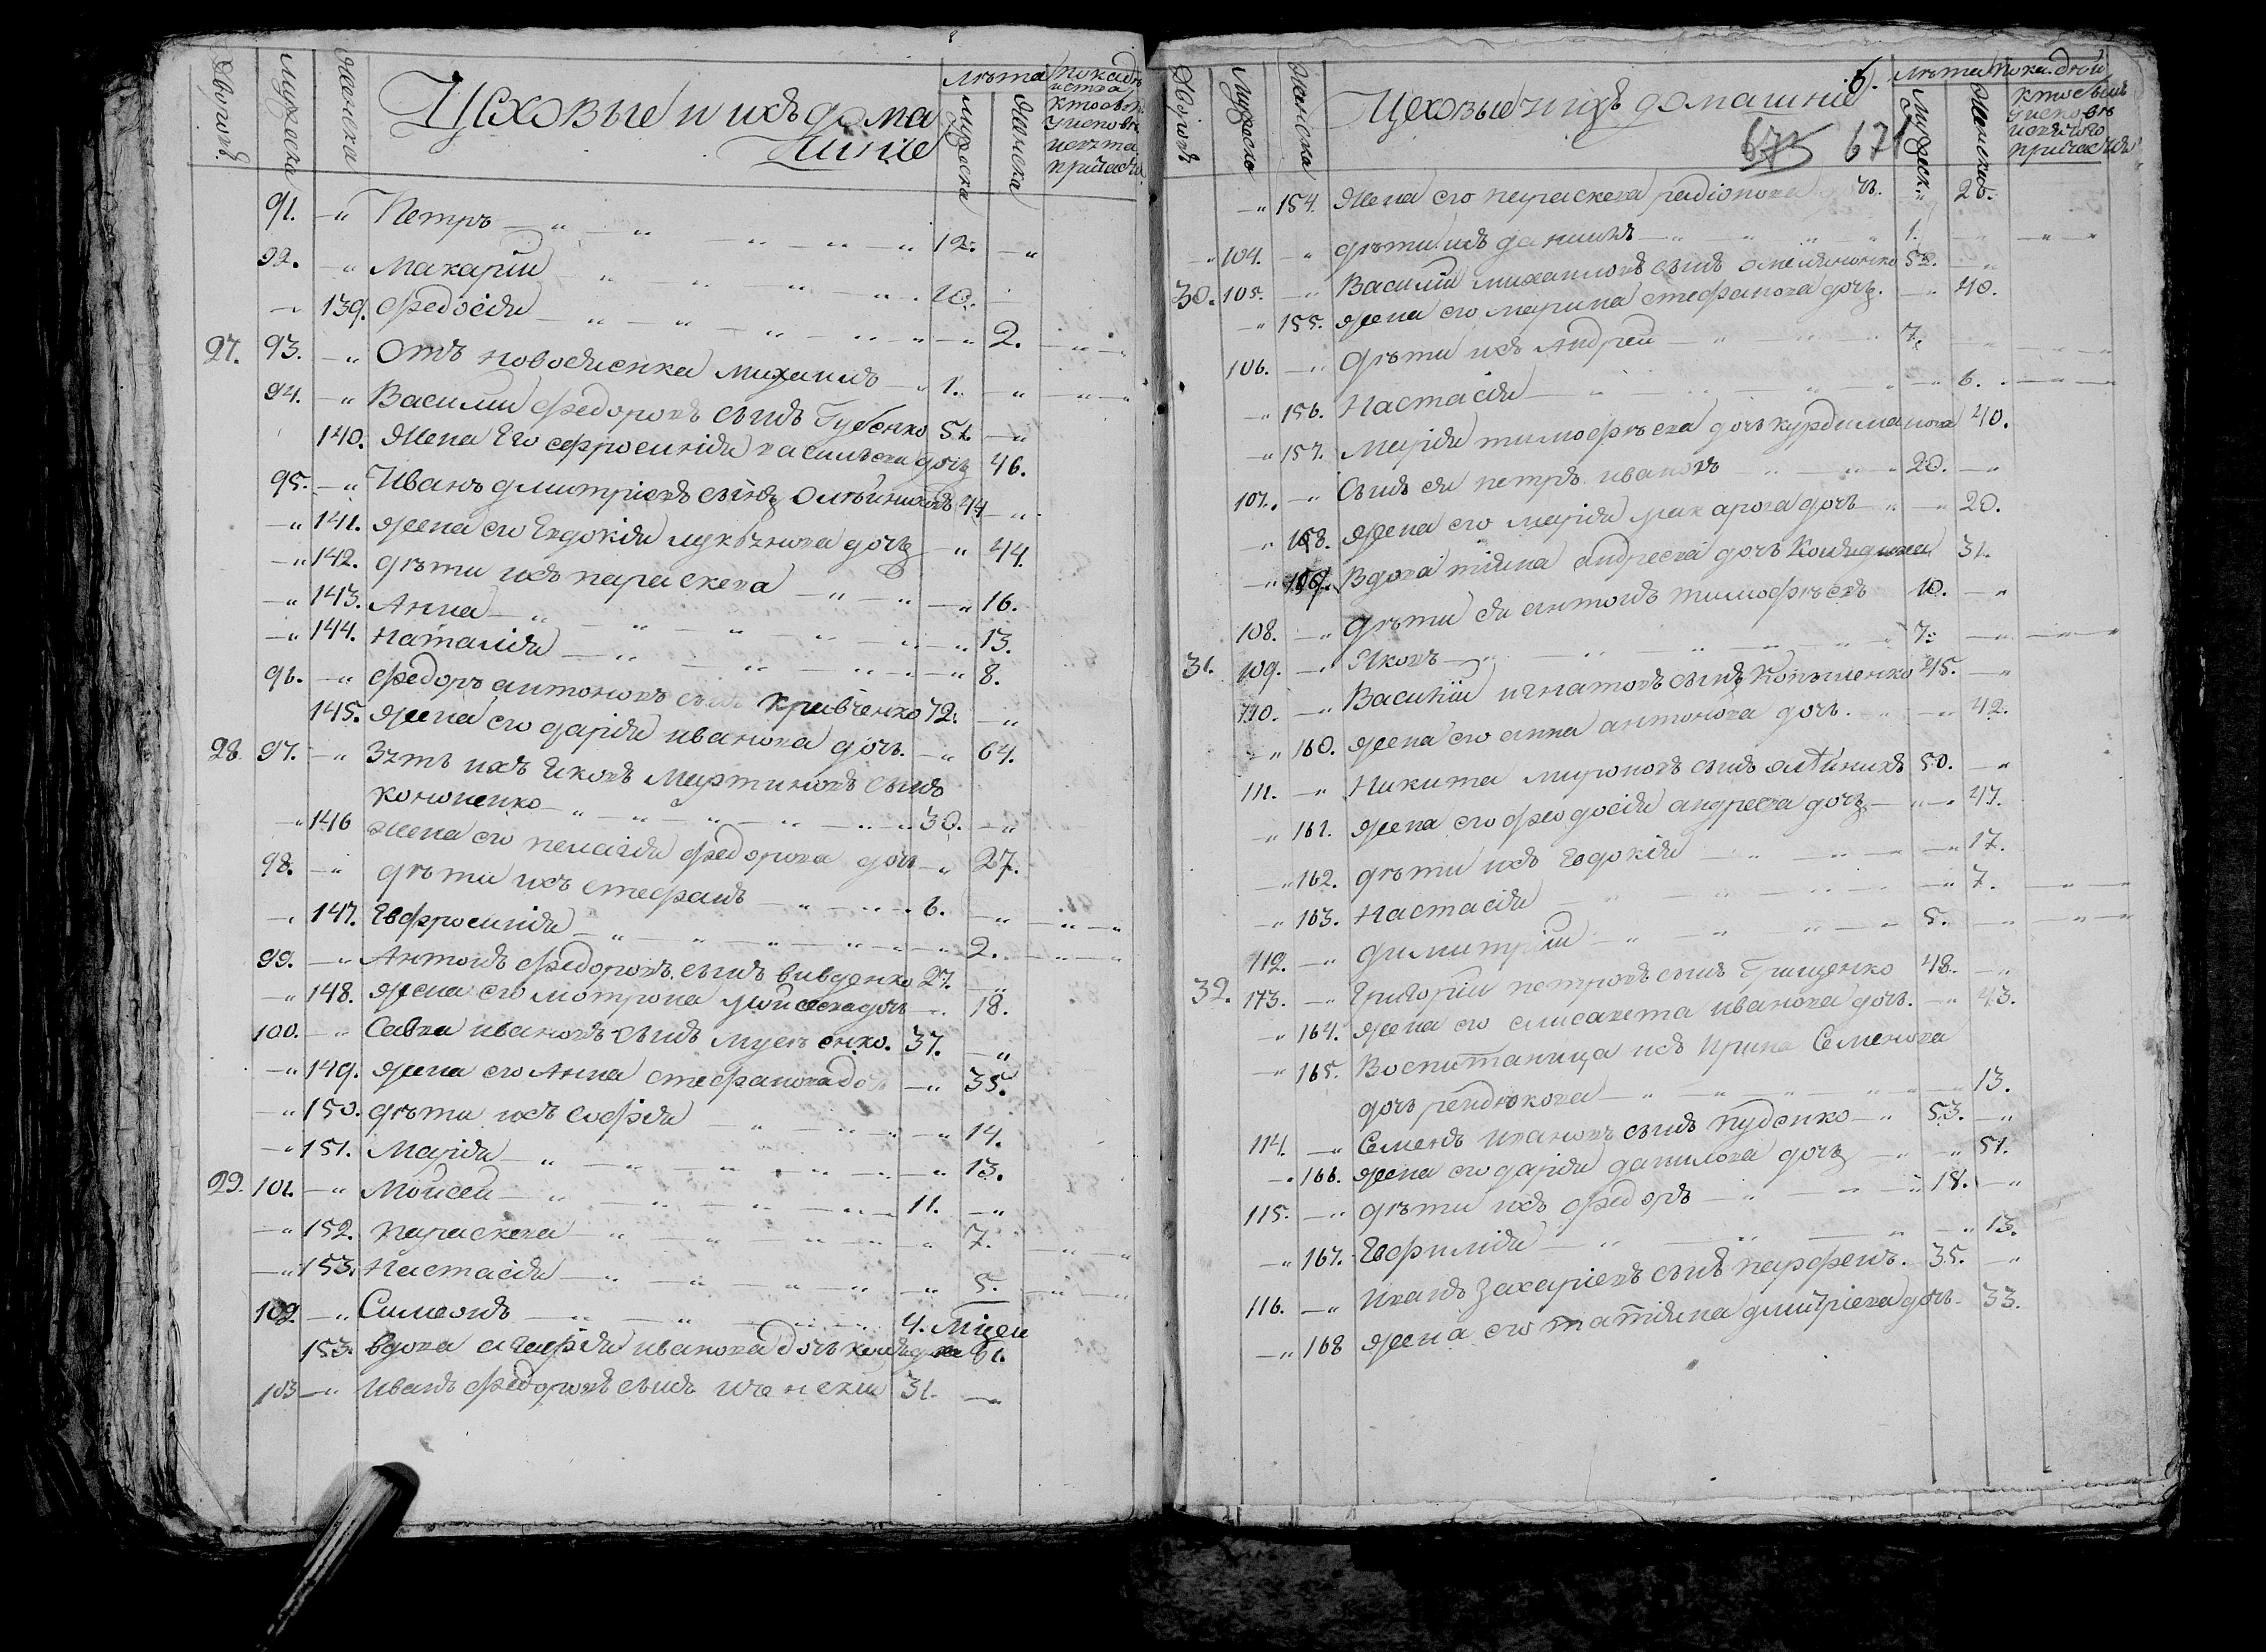 Дворовъ
Мужеска
Женска
Цеховые и ихъ дома
шние
Лѣта
Мужеска
Женска
91. Петръ 12.
92. Макарій 10.
139. Федосія 2.
27. 93. Отъ новосляснка Михаилъ 1.
94. Василий Федоровъ сынъ Губенко
140. Жена Его ефросинія васильева дочь 46.
95. Иванъ дмитріевъ сынъ 44
141. Жена его Евдокія дочь 44.
142. дѣти ихъ параскева 16.
143. Анна 13.
144. Наталія 8.
96. Федоръ антоновъ сынъ Кривченко 72.
145. Жена его дарія иванова дочь 64.
28. 97. Зять ихъ Яковъ Мартиновъ сынъ
кононенко 30.
146 жена его пелагія федорова дочь 27.
98. дѣти ихъ стефанъ 6.
147. Евфросинія 2.
99. Антонъ федоровъ сынъ вивденко 27.
148. Жена его мотрона мойсеева дочь 18.
100. Савва ивановъ сынъ 37.
149. Жена его Анна стефанова дочь 35.
150. дѣти ихъ софія 14.
151. Марія 13.
29. 101. Мойсей 11.
152. параскева 7.
153. Настасія 5.
102. Симеонъ 4. Мцеи
153. вдова агафія иванова дочь 61.
103 иванъ федоровъ сынъ 31.
Дворовъ
Мужеско
Женска
Цеховые и ихъ домашніе
6.
671
Лѣта
Мужеск.
Женска
154. Жена его параскева радіонова дочь. 25.
104. дѣти ихъ даниилъ 1.
30. 105. Василій михаиловъ сынъ омелияненко
155. Жена его марина стефанова дочь. 40.
106. дѣти ихъ андрей 7.
156. Настасія 6.
157. Марія тимофѣева дочь курдиманова 40.
107. Сынъ ея петръ ивановъ 20.
158. Жена его марія макарова дочь 20.
159. Вдова андреева дочь 31.
108. дѣти ея антонъ тимофѣевъ 10.
31. 109. Яковъ 7.
110. Василій игнатовъ сынъ 45.
160. Жена его анна антонова дочь. 42.
111. Никита мироновъ сынъ 50.
161. Жена его феодосія андреева дочь 47.
162. дѣти ихъ Евдокія 17.
163. Настасія 7.
112. димитрій 5.
32. 113. Григорій петровъ сынъ Грищенко 48.
164. Жена его елисавета иванова дочь. 43.
165. Воспитаница ихъ ирина Семенова
дочь рендюкова 13.
114. Семенъ ивановъ сынъ пуденко 53.
166. Жена его дарія данилова дочь 51.
115. дѣти ихъ федоръ 18.
167. Евфимія 13.
116. иванъ захаріевъ сынъ парфенъ. 35.
168 Жена его татіяна дмитріева дочь 33.